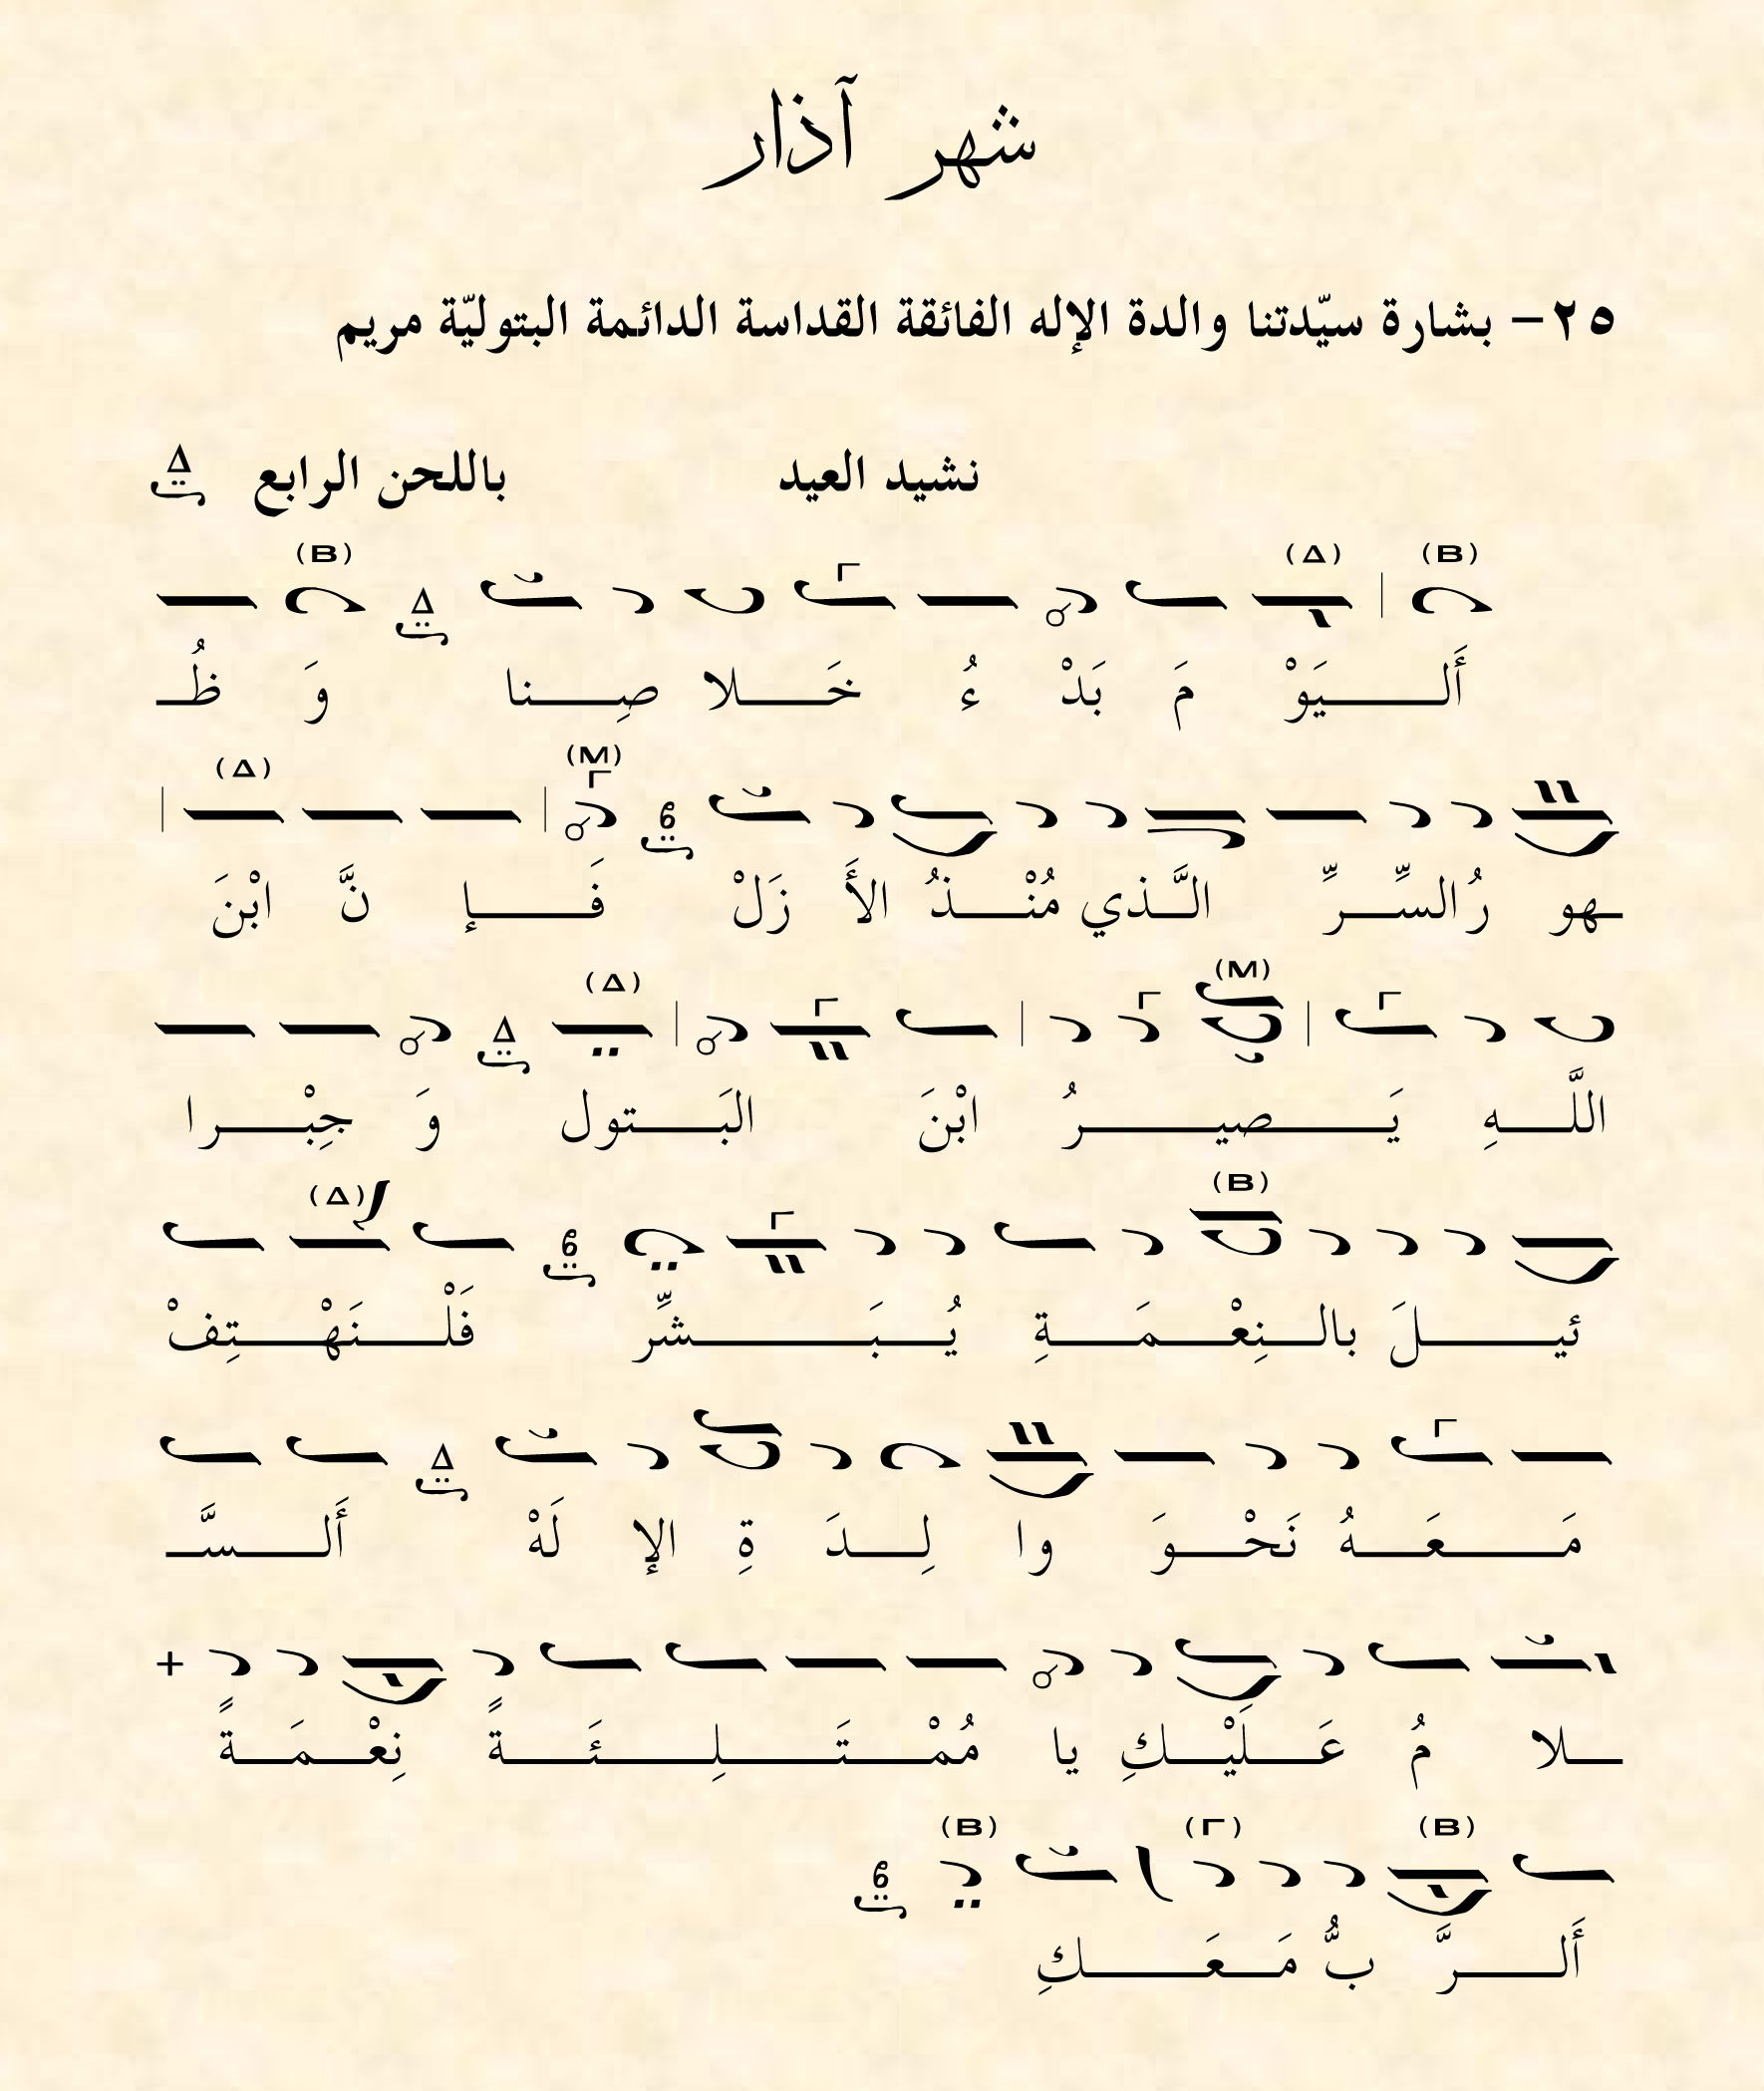 شهر آذار
٢٥- بشارة سيّدتنا والدة الإله الفائقة القداسة الدائمة البتوليّة مريم
نشيد العيد باللحن الرابع Δ
(B) (Δ) Γ Δ (B)
أَلـــيَوْ مَ بَدْ ءُ خَـــلا صِـــنا وَ ظُـ
(M) Γ (Δ)
ـهو رُ السِّـــرِّ الَّـــذي مُنْـــذُ الأَ زَلْ فَـــإِ نَّ ابْنَ
Γ (M) Γ Γ (Δ) Δ
اللَّـــهِ يَـــصيـــرُ ابْنَ البَـــتول وَ جِبْـــرا
(B) Γ (Δ)
ئيـــلَ بالـــنِعْـــمَـــةِ يُـــبَـــشِّر فَلْـــنَهْـــتِفْ
Γ Δ
مَـــعَـــهُ نَحْـــوَ وا لِـــدَ ةِ الإِ لَهْ أَلـــسَّـ
+
ـــلا مُ عَـــلَيْـــكِ يا مُمْـــتَـــلِـــئَـــةً نِعْـــمَـــةً
(B) (Γ) (B)
أَلـــرَّ بُّ مَـــعَـــكِ